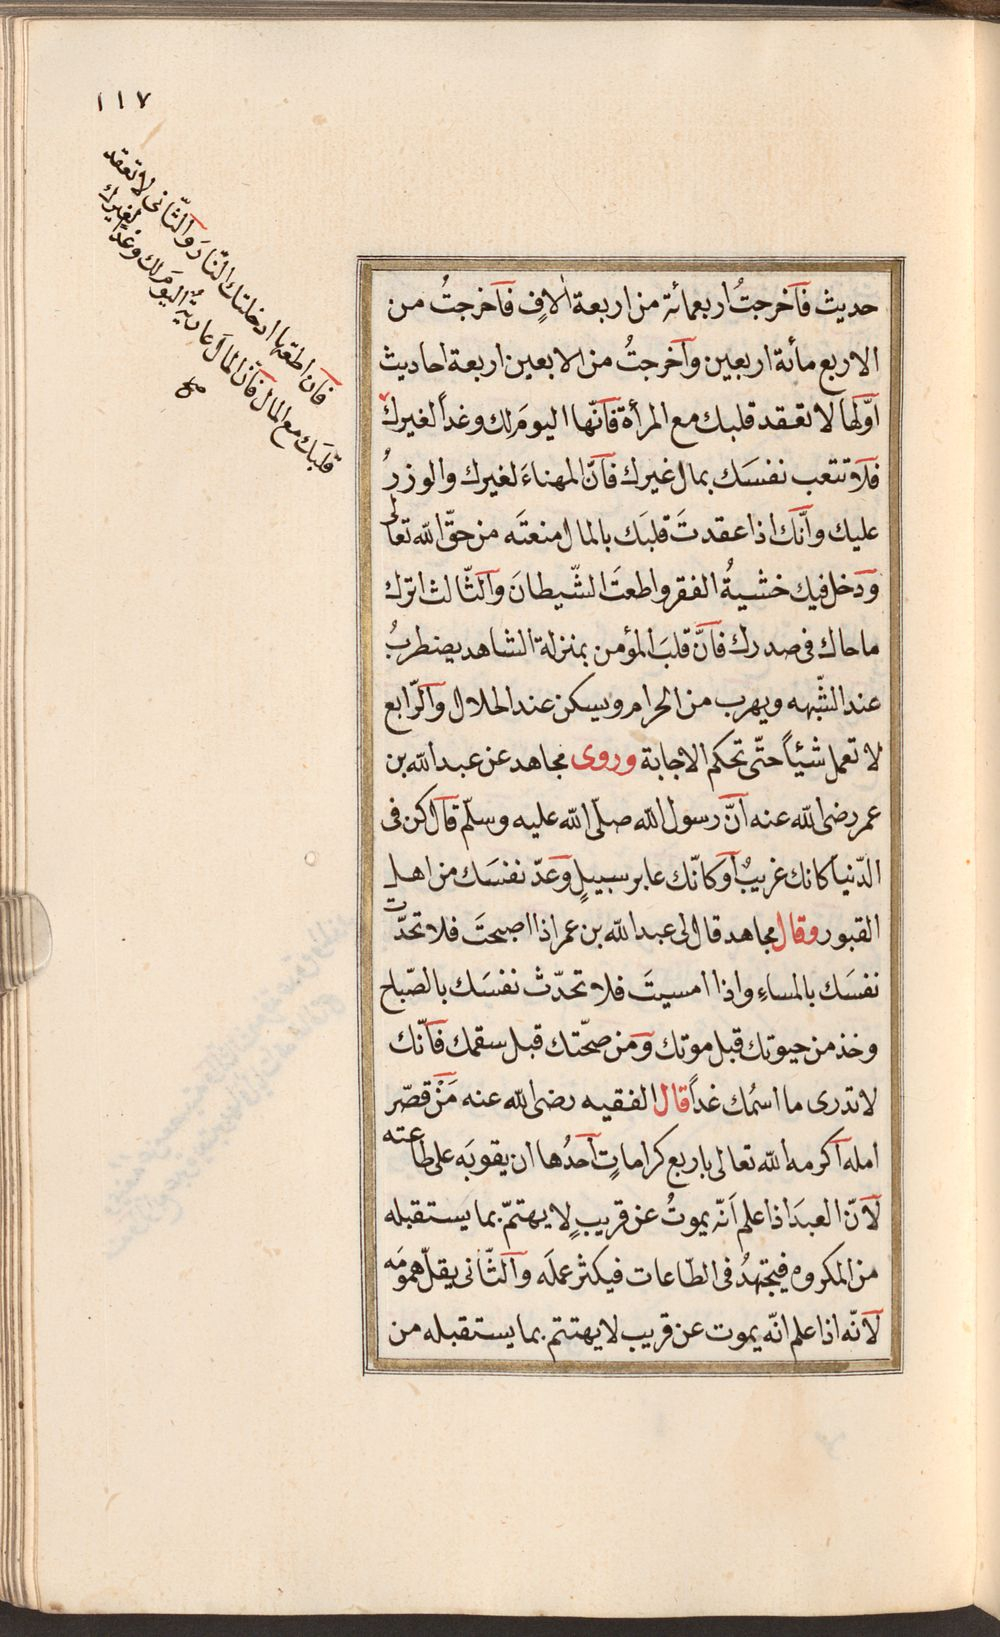 ١١٧
فان اطعتها ادخلتك النّار والثّانى لا تعقد
قلبك مع المال فانّ المال عارية اليوم لك وغدا لغيرك
صح
حديث فاخرجتُ اربعمائة من اربعة الافٍ فاخرجتُ من
الاربع مأئة اربعين واخرجتُ من الابعين اربعة احاديث
اوّلها لا تعقد قلبك مع المرأة فانّها اليومَ لك وغداً لغيرك
فلا تتعب نفسَك بمال غيرك فانّ المهناءَ لغيرك والوزرُ
عليك وانّك اذا عقدتَ قلبَك بالمال منعتَه من حقّ الله تعالى
ودخل فيك خشيةُ الفقر واطعتَ الشّيطانَ والثّالث اترك
ما حاك فى صدرك فانَّ قلبَ المؤمن بمنزلة الشاهد يضطربُ
عند الشّبهه ويهرب من الحرام ويسكن عند الحلال والرّابع
لا تعمل شيئاً حتّى تحكم الاجابة وروى مجاهد عن عبد الله بن
عمر رضى الله عنه انّ رسول الله صلّى الله عليه وسلّم قال كن فى
الدّنيا كانك غريبٌ او كانّك عابر سبيلٍ وعدّ نفسَك من اهل
القبور وقال مجاهد قال لى عبد الله بن عمر اذا اصبحتَ فلا تحدّث
نفسَك بالمساءِ واذا امسيتَ فلا تحدّث نفسَك بالصّباح
وخذ من حيوتك قبل موتك ومن صحّتك قبل سقمك فانّك
لا تدرى ما اسمُك غداً قال الفقيه رضى الله عنه مَنْ قصّر
امله اكرمه الله تعالى باربع كراماتٍ احدُها ان يقويَه على طاعته
لانّ العبدَ اذا علم اَنّه يموتُ عن قريبٍ لا يهتمّ بما يستقبله
من المكروه فيجتهدُ فى الطّاعات فيكثر عملَه والثّانى يقلّ همومَه
لانّه اذا علم انّه يموت عن قريب لا يهتتم بما يستقبله من